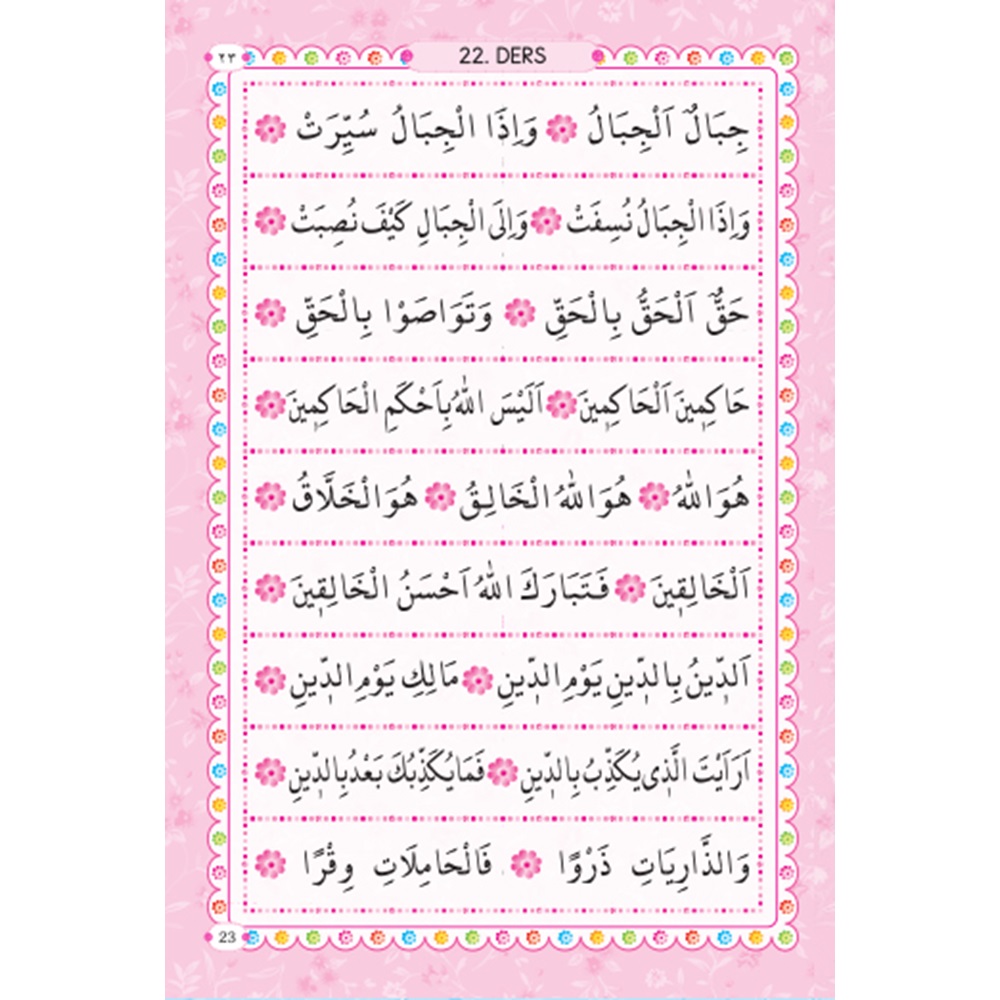 ٢٣
22. DERS
جِبَالٌ اَلْجِبَالُ وَاِذَا الْجِبَالُ سُيِّرَتْ
وَاِذَا الْجِبَالُ نُسِفَتْ وَاِلَى الْجِبَالِ كَيْفَ نُصِبَتْ
حَقٌّ اَلْحَقُّ بِالْحَقِّ وَتَوَاصَوْا بِالْحَقِّ
حَاكِمٖينَ اَلْحَاكِمٖينَ اَلَيْسَ اللّٰهُ بِاَحْكَمِ الْحَاكِمٖينَ
هُوَ اللّٰهُ هُوَ اللّٰهُ الْخَالِقُ هُوَ الْخَلَّاقُ
اَلْخَالِقٖينَ فَتَبَارَكَ اللّٰهُ اَحْسَنُ الْخَالِقٖينَ
اَلدّٖينُ بِالدّٖينِ يَوْمِ الدّٖينِ مَالِكِ يَوْمِ الدّٖينِ
اَرَاَيْتَ الَّذٖى يُكَذِّبُ بِالدّٖينِ فَمَا يُكَذِّبُكَ بَعْدُ بِالدّٖينِ
وَالذَّارِيَاتِ ذَرْوًا فَالْحَامِلَاتِ وِقْرًا
23